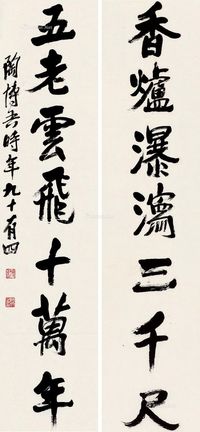 香爐瀑瀉三千尺
五老雲飛十萬年
陶博吾時年九十有四